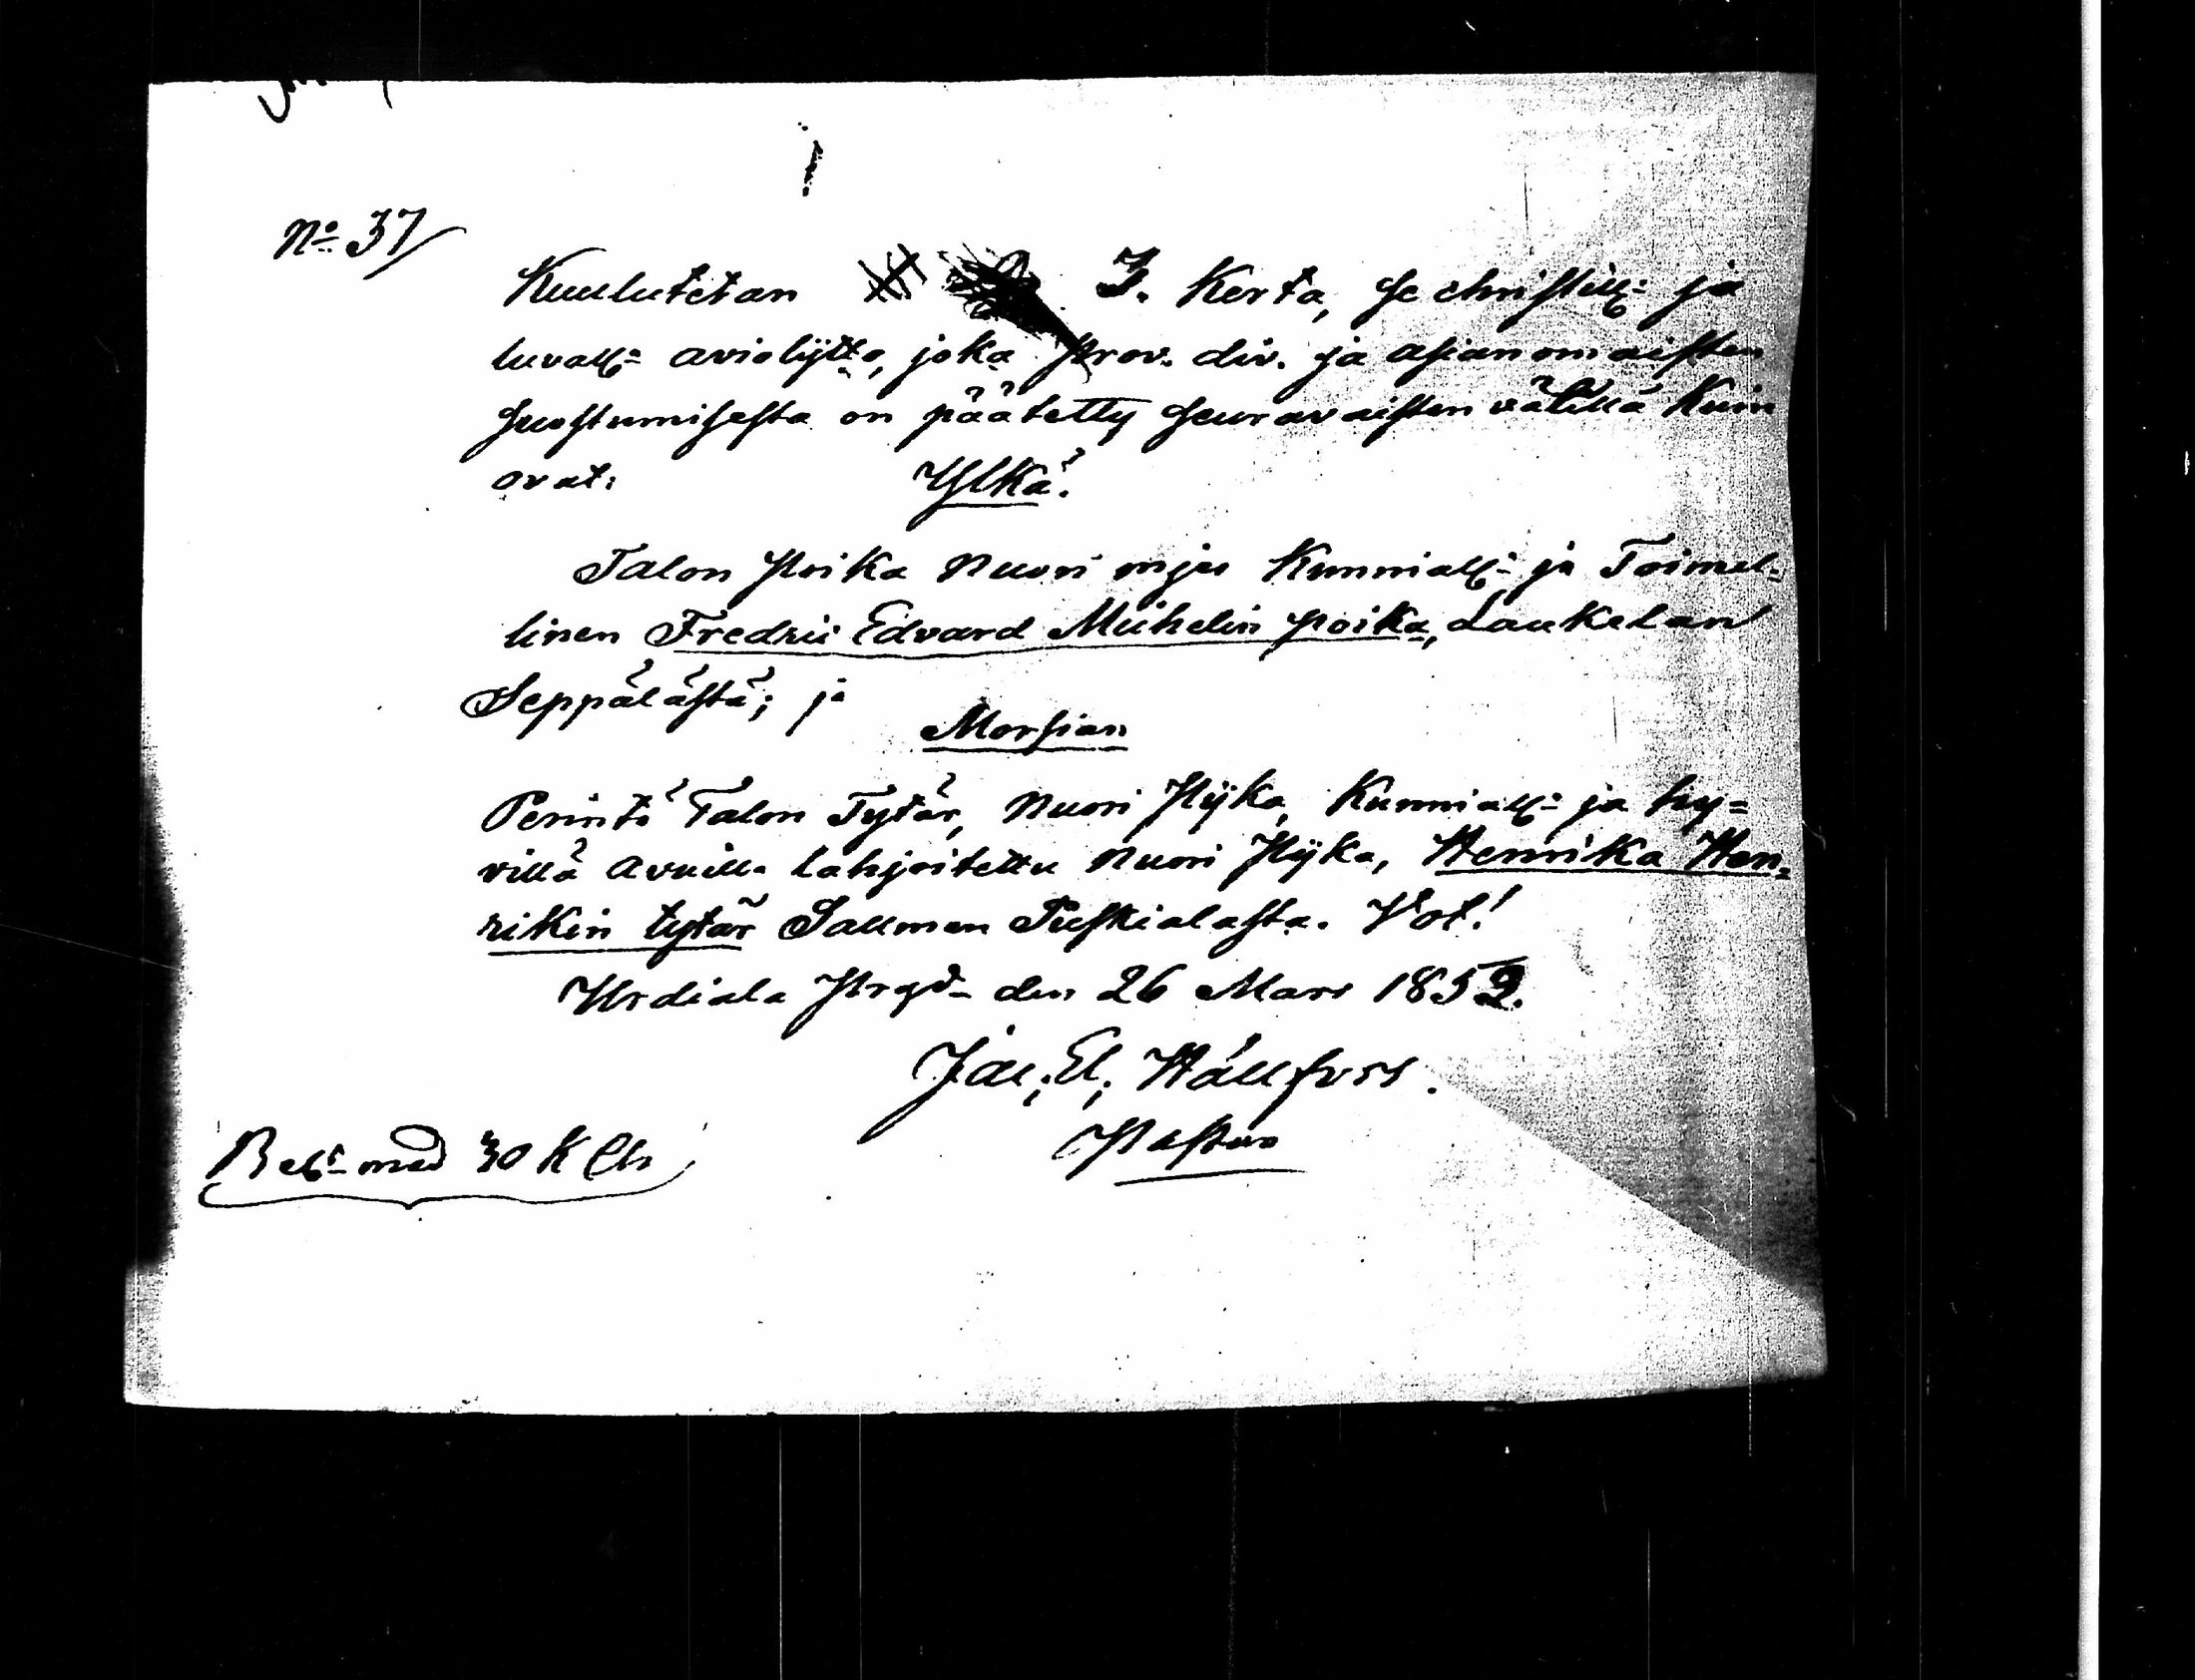 No 37/
Kuulutetan 3. Kerta, se christill: ja
luvall: aviolijtto, joka Prov. div. ja asianomaisten
suostumisesta on päätetty seuravaisten välillä Kuin
ovat:
Ylkä.
Talon Poika Nuori mjes Kunniall: ja Toimel=
linen Fredric Edvard Mickelin poika, Laukelan
Seppälästä; ja
Morsian
Perintö Talon Tytär, Nuori Pijka, Kunniall: ja hy=
villä avuilla lahjoitettu Nuori Pijka, Henrika Hen=
rikin tytär Sallman Puskialasta. Vot!
Urdiala Prgd. den 26 Mars 1852.
Jac; El; Hällfors.
Pastor
Bet. med 30 K